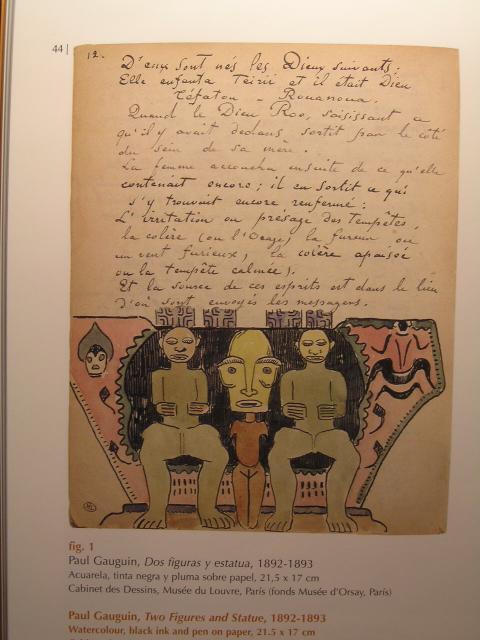 44 |
12.
D'eux sont nés les Dieux suivants:
Elle enfanta Teirii et il était Dieu
Téfatou - Rouanoua.
Quand le Dieu Roo, saisissant ce
qu'il y avait dedans sortit par le côté
du sein de sa mère.
La femme accoucha ensuite de ce qu'elle
contenait encore; il en sortit ce qui
s'y trouvait encore renfermé:
L'irritation ou présage des Tempêtes,
la colère (ou l'Orage) la fureur ou
un vent furieux, la colère apaisée
ou la tempête calmée).
Et la source de ces esprits est dans le lieu
D'où sont envoyés les messagers.
fig. 1
Paul Gauguin, Dos figuras y estatua, 1892-1893
Acuarela, tinta negra y pluma sobre papel, 21,5 x 17 cm
Cabinet des Dessins, Musée du Louvre, París (fonds Musée d'Orsay, París)
Paul Gauguin, Two Figures and Statue, 1892-1893
Watercolour, black ink and pen on paper, 21.5 x 17 cm